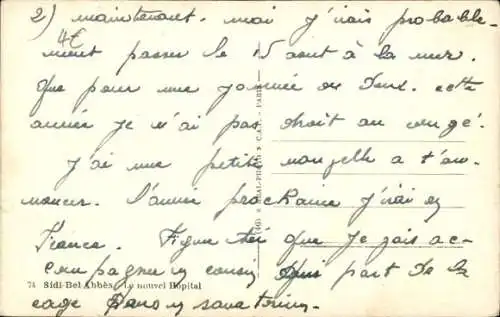 2) maintenant. moi j'irais probable-
4€
ment passer le 15 aout à la mer.
Que pour une journée ou deux. cette
année je n'ai pas droit au congé.
j'ai une petite nouvelle a t'an-
noncer. L'année prochaine j'irai en
France. Figure toi que je vais ac-
compagner un convoy qui part de la
74 Sidi-Bel-Abbès. Le nouvel Hôpital
sanatorium